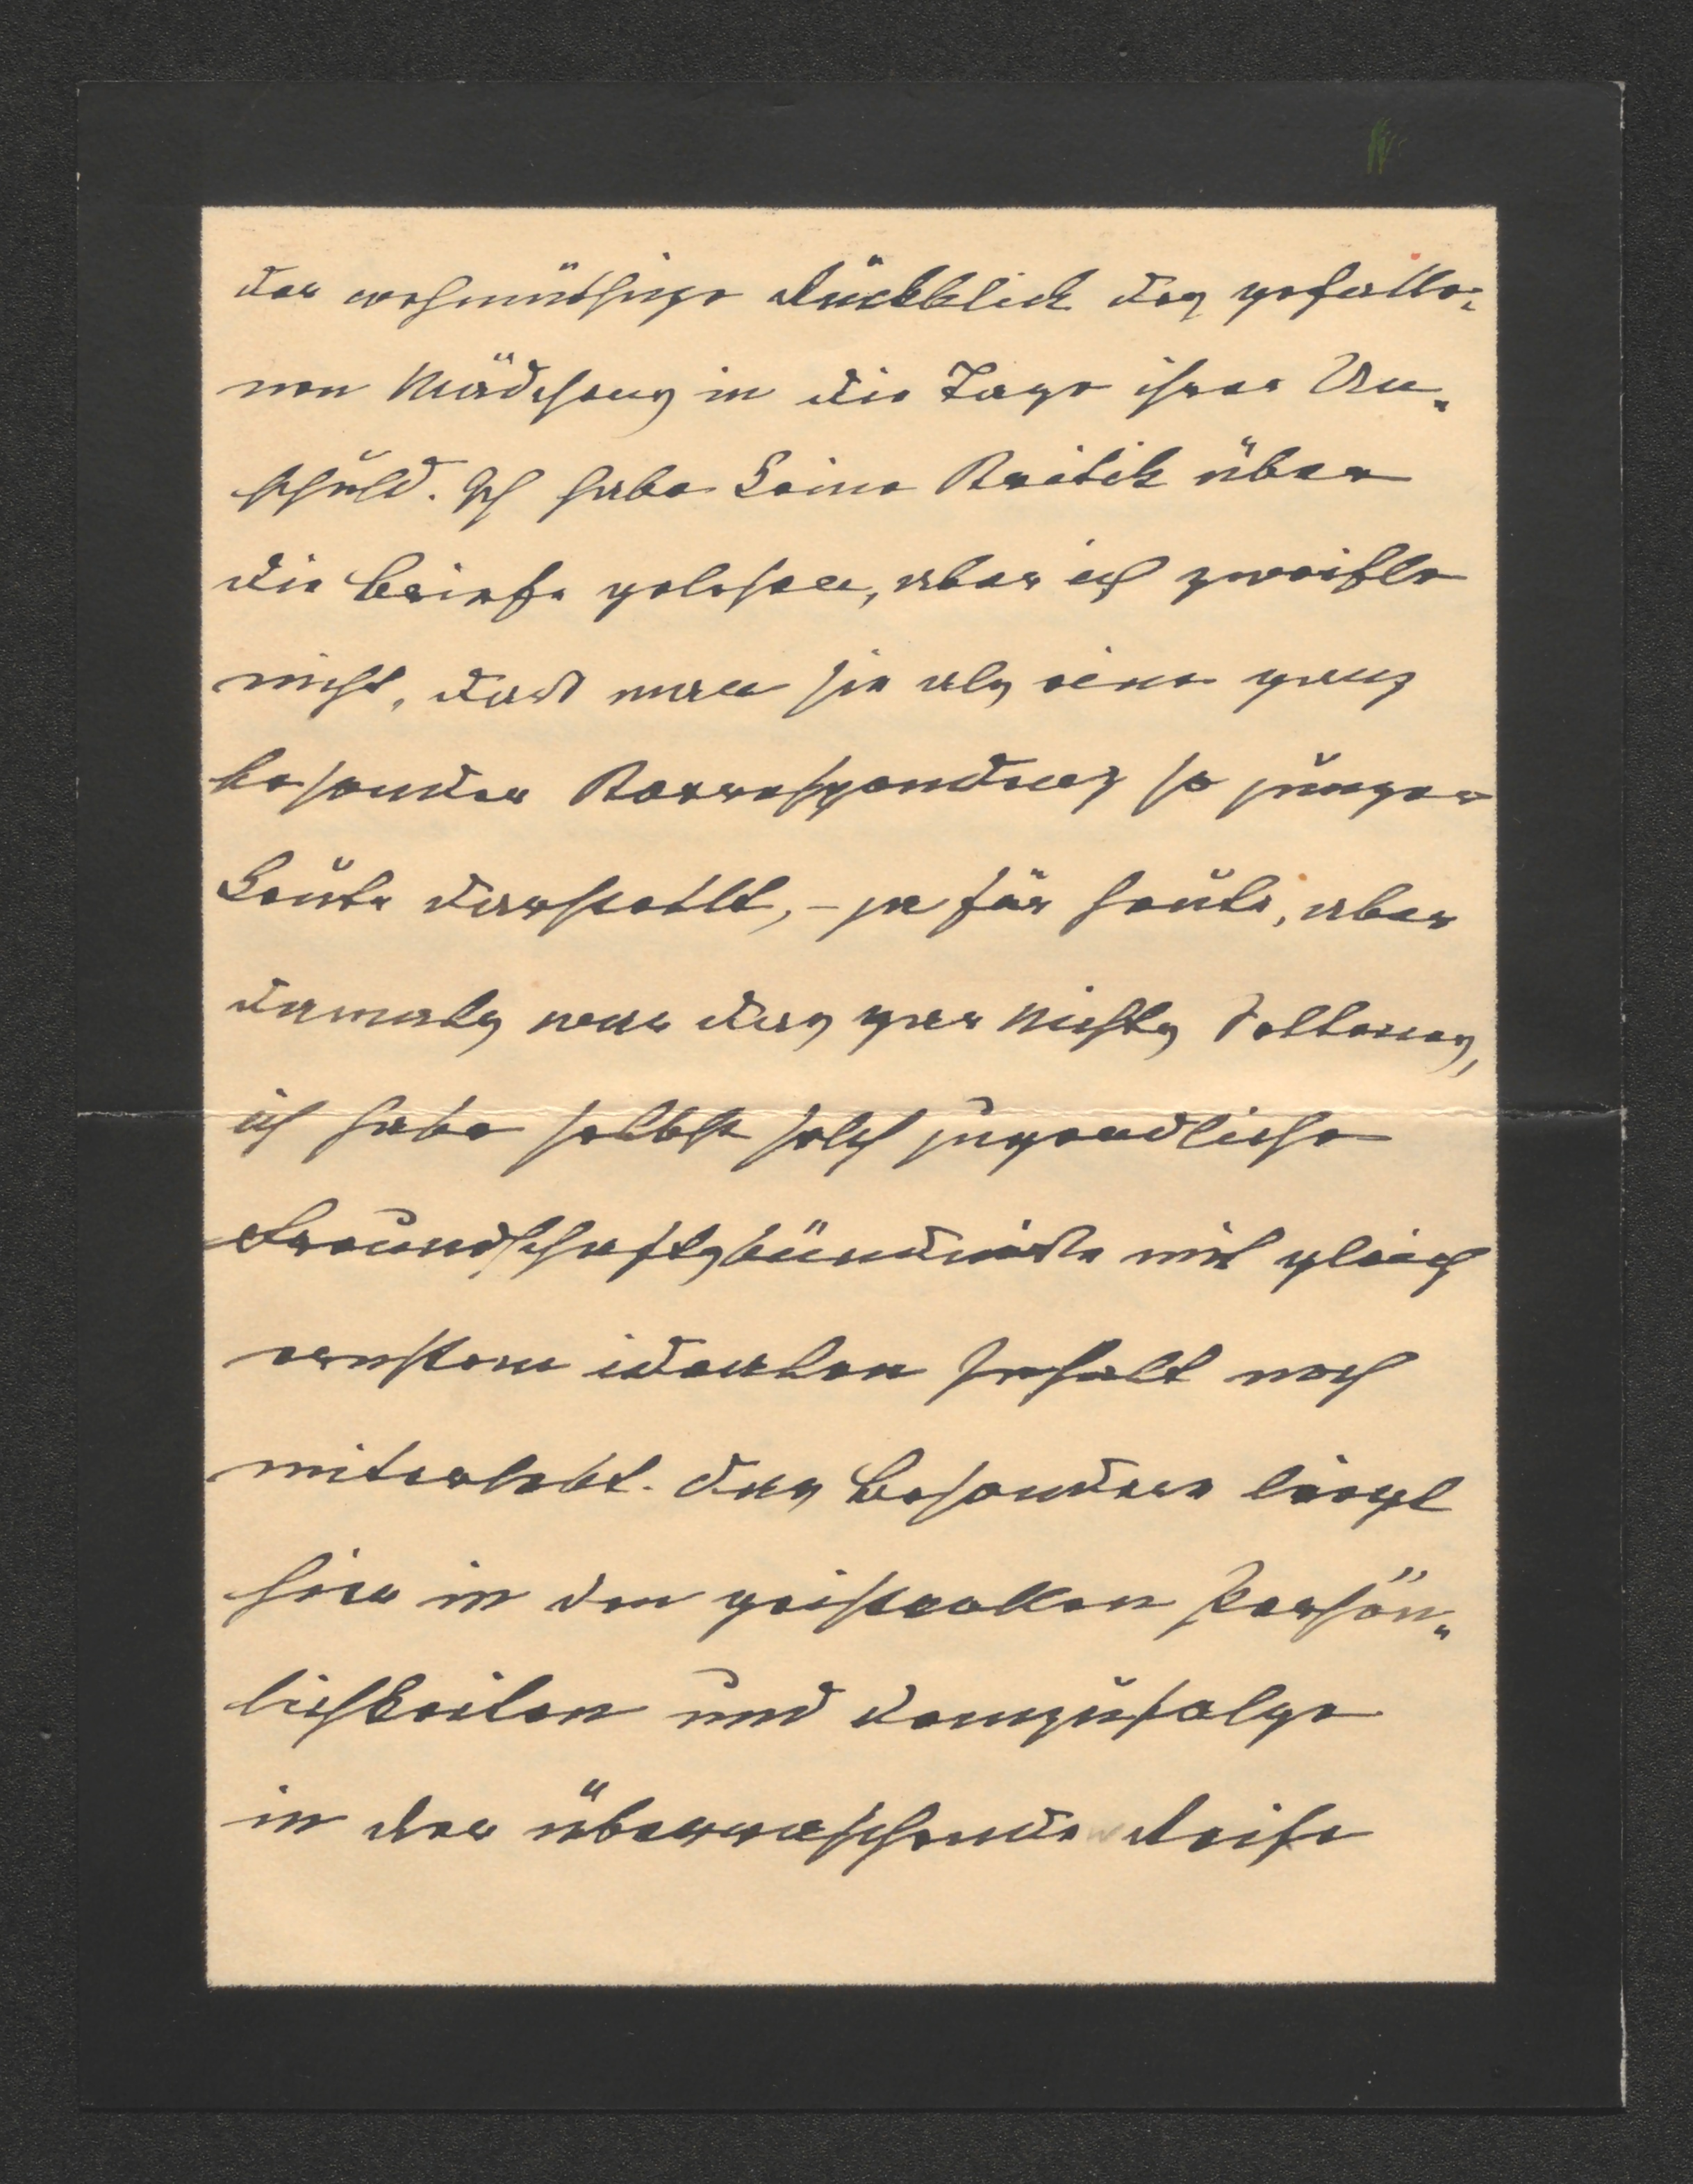 der wehmüthige Rückblick des gefalle=
nen Mädchens in die Tage ihrer Un„
schuld. Ich habe keine Kritik über
die Briefe gelesen, aber ich zweifle
nicht, daß man sie als eine ganz
besonder Korrespondenz so junger
Leute darstellt, – ja für heute, aber
damals war das gar nichts Seltenes,
ich habe selbst solch jugendliche
Freundschaftsbündniße mit gleich
ernstem idealen Inhalt noch
miterlebt. Das Besondere liegt
hier in den geistvollen Persön„
lichkeiten und demzufolge
in der überraschende Reife